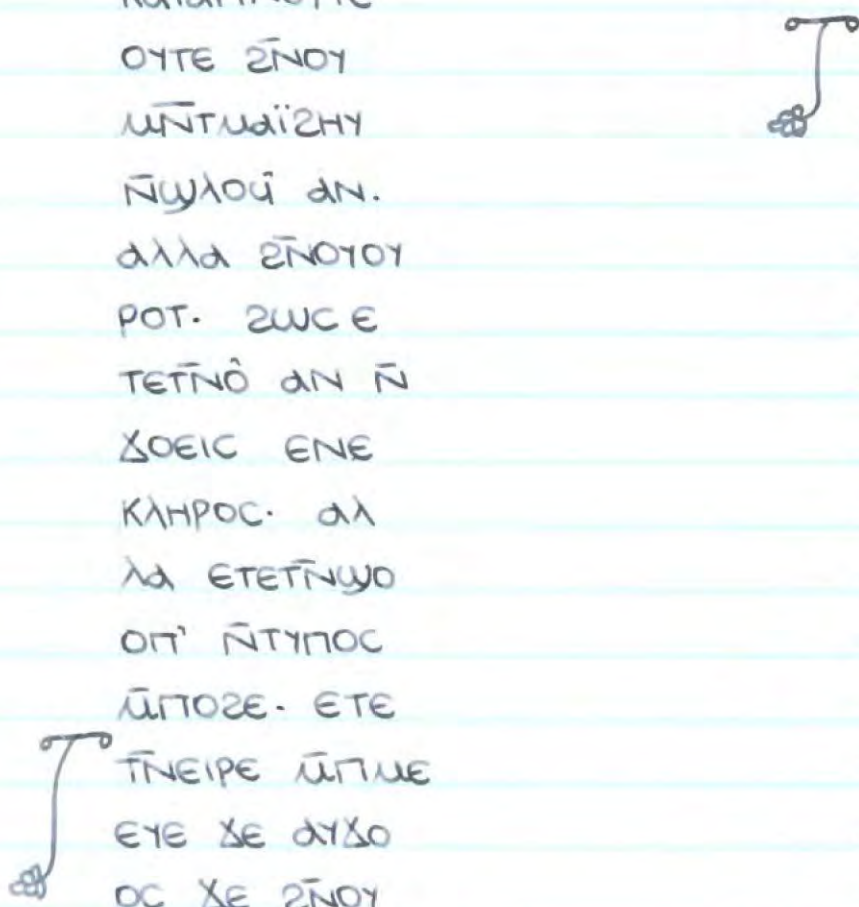 ⲕⲁⲧⲁⲡⲛⲟⲩⲧⲉ
ⲟⲩⲧⲉ ϩⲛ̄ⲟⲩ
ⲙⲛ̄ⲧⲙⲁⲓ̈ϩⲏⲩ
ⲛ̄ϣⲗⲟϥ̄ ⲁⲛ.
ⲁⲗⲗⲁ ϩⲛ̄ⲟⲩⲟⲩ
ⲣⲟⲧ· ϩⲱⲥ ⲉ
ⲧⲉⲧⲛ̄ⲟ̂ ⲁⲛ ⲛ̄
ϫⲟⲉⲓⲥ ⲉⲛⲉ
ⲕⲗⲏⲣⲟⲥ· ⲁⲗ
ⲗⲁ ⲉⲧⲉⲧⲛ̄ϣⲟ
ⲟⲡ' ⲛ̄ⲧⲩⲡⲟⲥ
ⲙ̄ⲡⲟϩⲉ· ⲉⲧⲉ
ⲧⲛ̄ⲉⲓⲣⲉ ⲙ̄ⲡⲙⲉ
ⲉⲩⲉ ϫⲉ ⲁⲩϫⲟ
ⲟⲥ ϫⲉ ϩⲛ̄ⲟⲩ